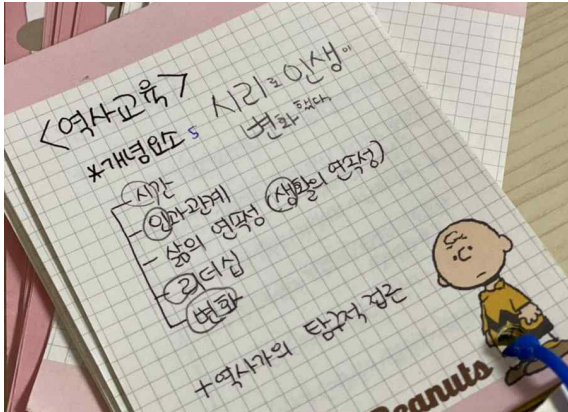 <역사교육>
시리로 인생이
변화했다.
*개념요소 5
시간
인과관계
삶의 연속성 (생활의 연속성)
리더십
변화
+역사가의 탐구적 접근
Peanuts